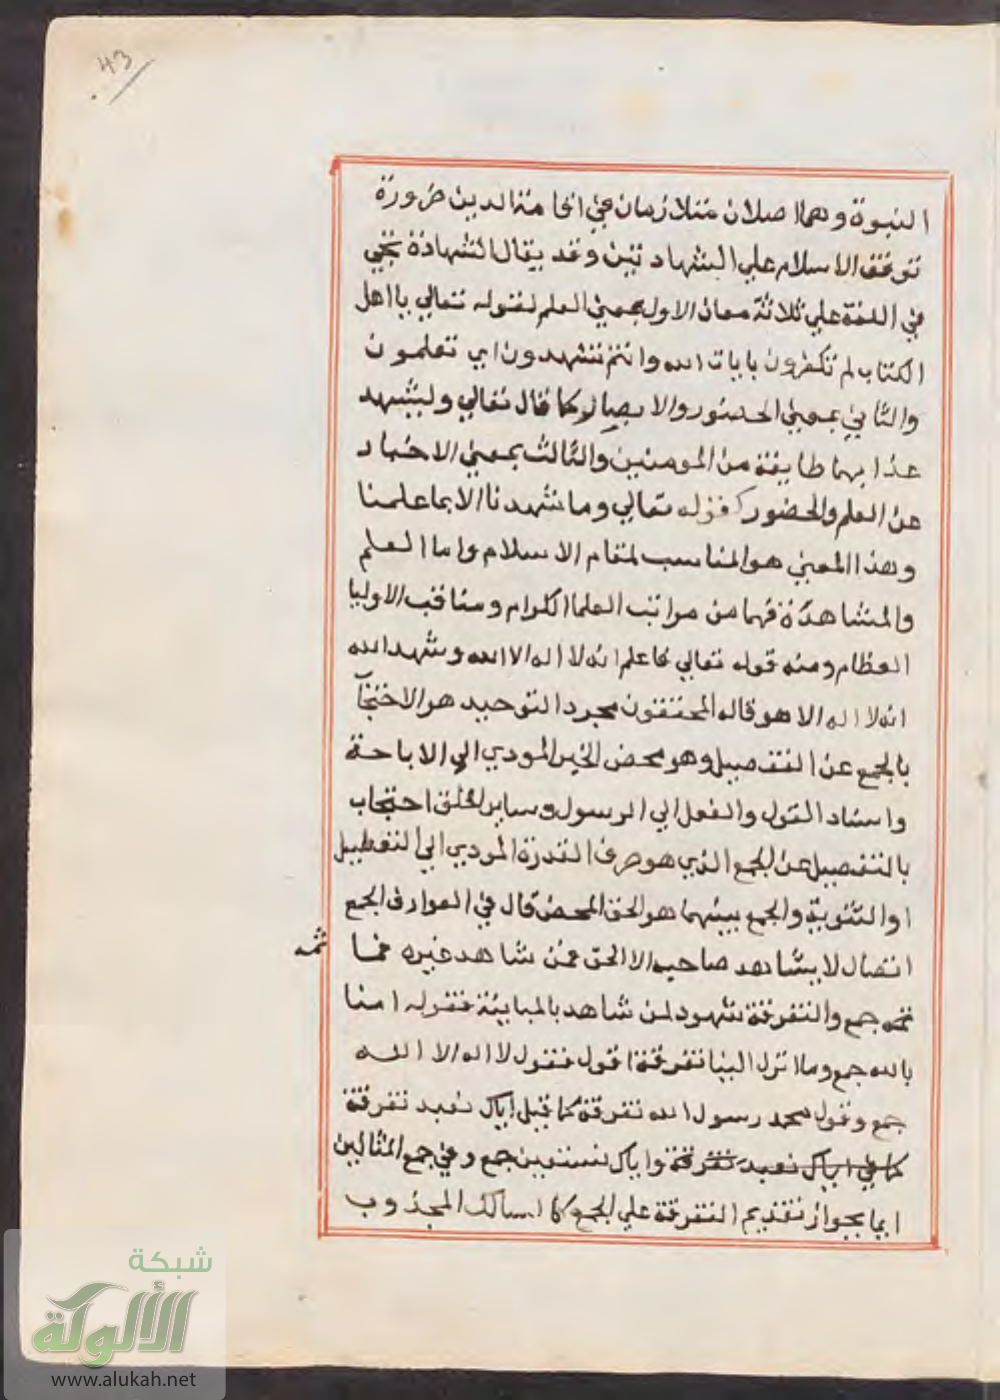 43
النبوة وهما اصلان متلازمان في اقامة الدين ضرورة
توقف الاسلام علي الشهادتين وقد يقال الشهادة تجي
في اللغة علي ثلاثة معان الاول بمعني العلم لقوله تعالي يا اهل
الكتاب لم تكفرون بايات الله وانتم تشهدون اي تعلمون
والثاني بمعني الحضور والابصار كما قال تعالي وليشهد
عذابهما طايفة من المومنين والثالث بمعني الاخبار
عن العلم والحضور كقوله تعالي وما شهدنا الا بما علمنا
وهذا المعني هو المناسب لمقام الاسلام واما العلم
والمشاهدة فهما من مراتب العلما الكرام ومناقب الاوليا
العظام ومنه قوله تعالي فاعلم انه لا اله الا الله وشهد الله
انه لا اله الا هو قاله المحققون مجرد التوحيد هو الاحتجا
بالجمع عن التفصيل وهو محض الجبر المودي الي الاباحة
واسناد القول والفعل الي الرسول وساير الخلق احتجاب
بالتفصيل عن الجمع الذي هو صرف القدرة المودي الي التعطيل
او الثنوية والجمع بينهما هو الحق المحض قال في العوارف الجمع
اتصال لا يشاهد صاحبه الا الحق فمن شاهد غيره فما
ثمه
ثمه جمع والتفرقة شهود لمن شاهد بالمباينة فقوله امنا
بالله جمع وما انزل الينا تفرقة اقول فنقول لا اله الا الله
جمع وقول محمد رسول الله تفرقة كما قيل اياك نعبد تفرقة
كما في اياك نعبد تفرقة واياك نستعين جمع وفي جمع المثالين
ايما بجواز تقديم التفرقة علي الجمع كما السالك المجذوب
شبكة
الألوكة
www.alukah.net